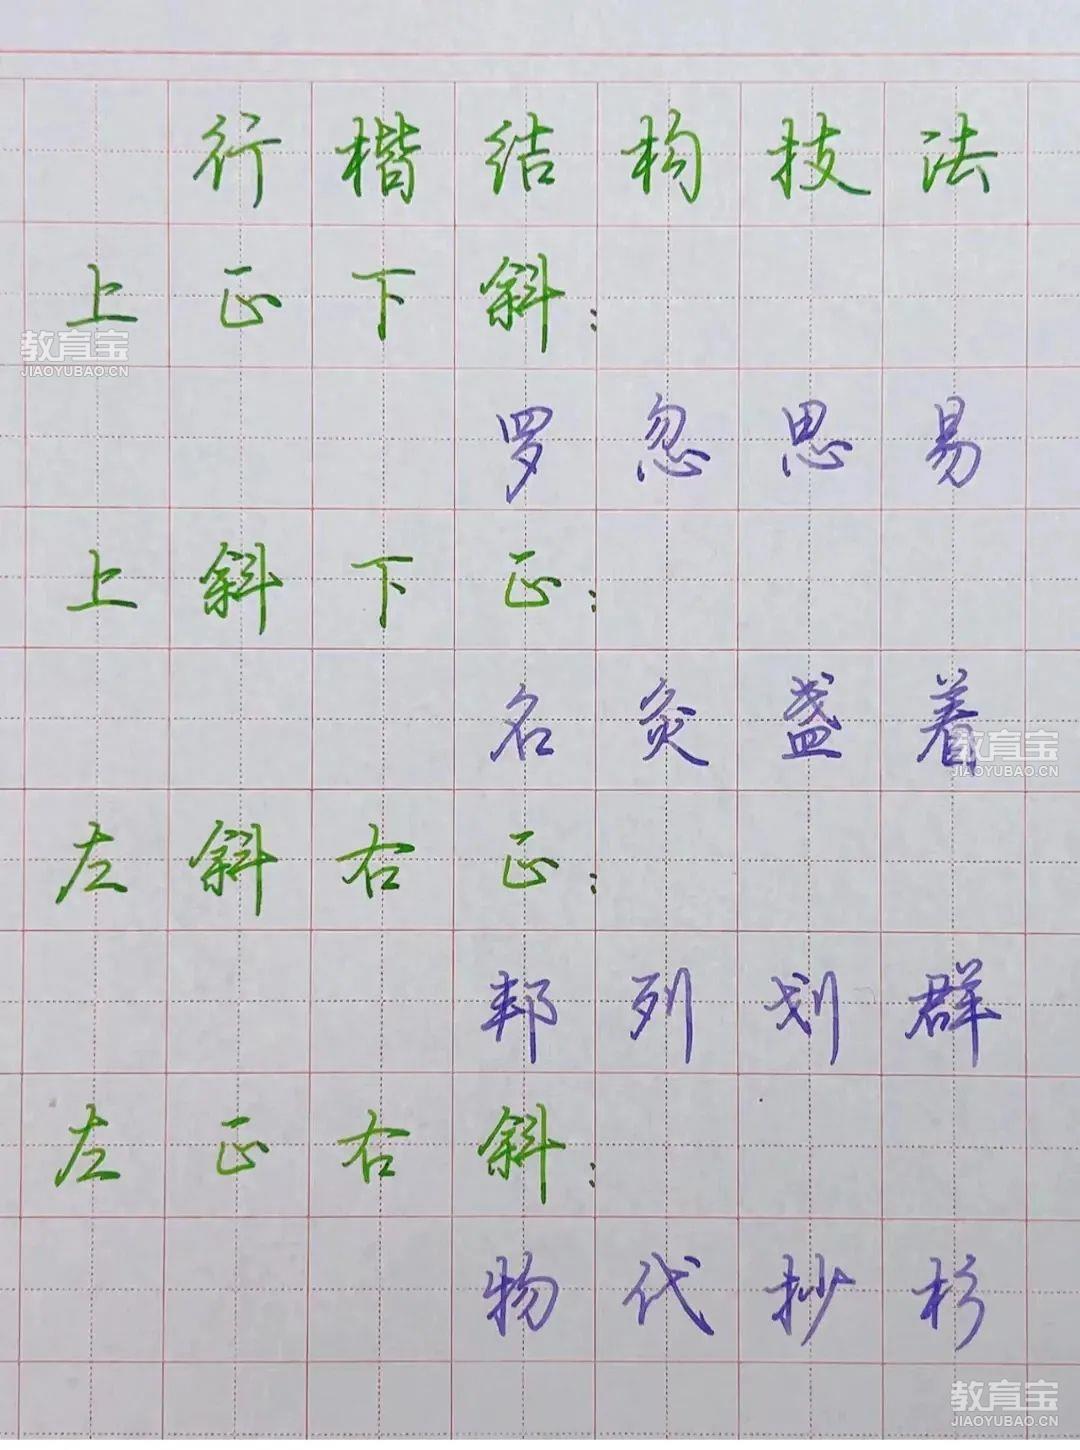 行楷结构技法
上正下斜：
教育宝
JIAOYUBAO.CN
罗忽思易
上斜下正：
名灸盏着
教育宝
JIAOYUBAO.CN
左斜右正：
邦列划群
左正右斜：
物代抄杉
教育宝
JIAOYUBAO.CN